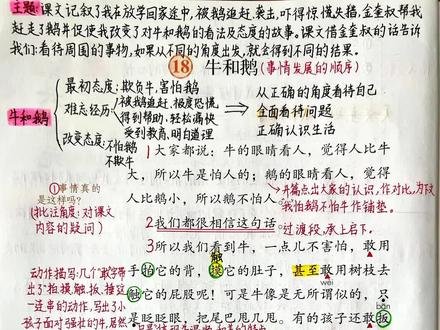 主题:课文记叙了我在放学回家途中,被鹅追赶、袭击,吓得惊慌失措,金奎叔帮我
赶走了鹅并促使我改变了对牛和鹅的看法及态度的故事。课文借金奎叔的话告诉
我们:看待周围的事物,如果从不同的角度出发,就会得到不同的结果。
18 牛和鹅(事情发展的顺序)
牛和鹅
最初态度:欺负牛,害怕鹅
难忘经历
被鹅追赶,极度恐慌
得到帮助,轻松痛快
受到教育,明白道理
改变态度:不怕鹅
不欺牛
从正确的角度看待自己
全面看待问题
正确认识生活
1大家都说:牛的眼睛看人,觉得人比牛
大,所以牛是怕人的;鹅的眼睛看人,觉得
人比鹅小,所以鹅不怕人
→开篇点出大家的认识,作对比,为下文
“我怕鹅不怕牛”作铺垫。
①事情真的
是这样吗?
(批注角度:对课文
内容的疑问)
2我们都很相信这句话
→过渡段,承上启下。
3所以我们看到牛,一点儿不害怕,敢用
触
手拍它的背,摸它的肚子,甚至敢用树枝去
wěi
触它的屁股呢!可是牛像是无所谓似的,只
bān
是眨眨眼,把尾巴甩几甩。有的孩子还敢扳
动作描写:几个“敢”字带
出了“拍、摸、触、扳、捶”这
一连串的动作,写出了小
孩子面对强壮的牛,居然